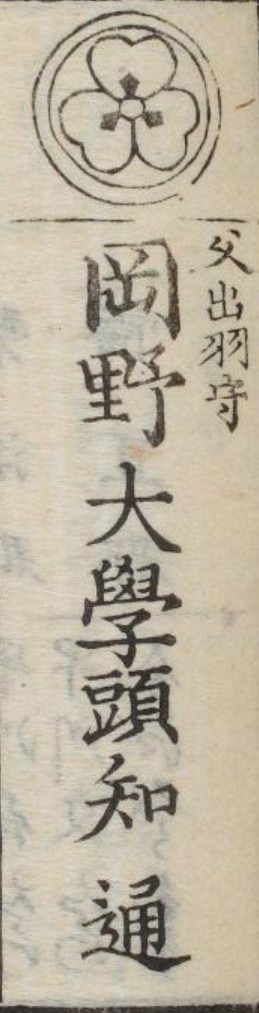 父出羽守
岡野大學頭知通